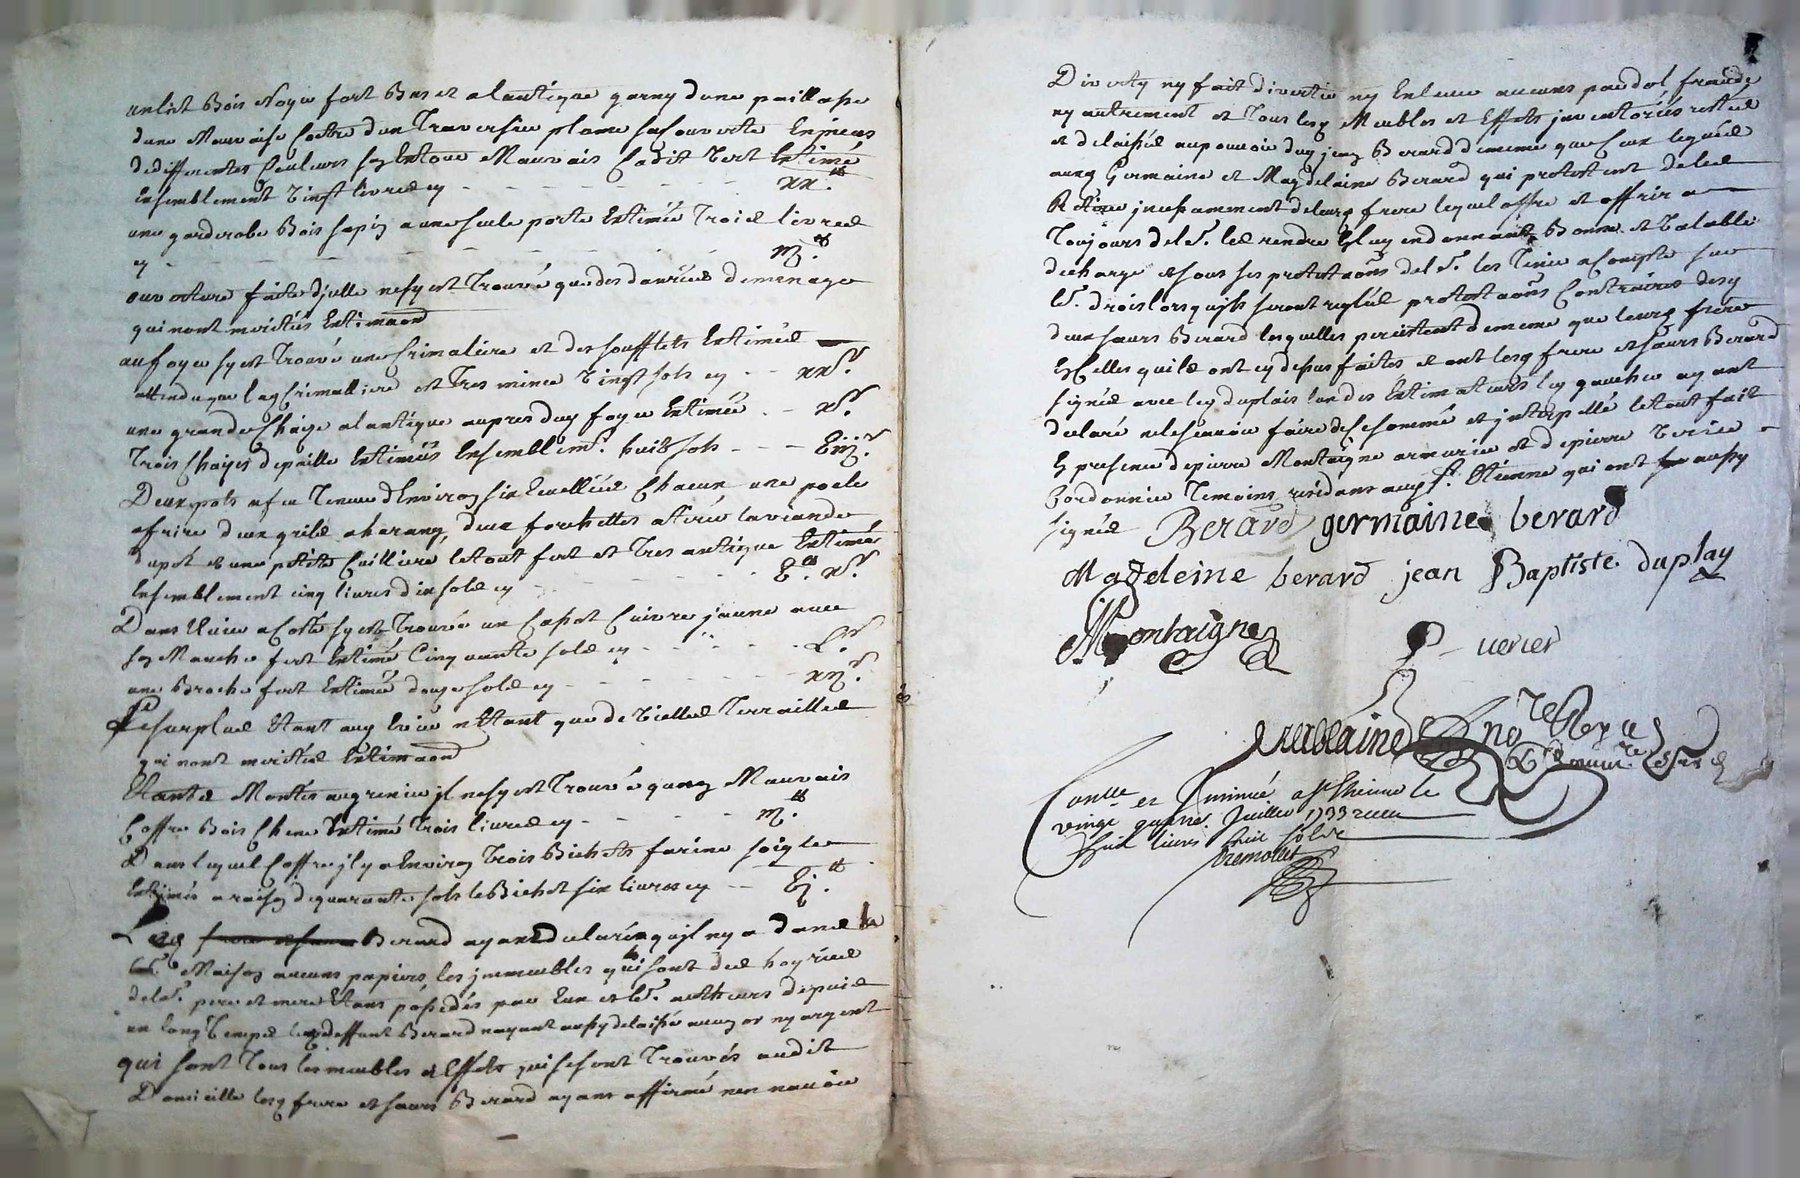 un lit Bois Noyer fort Bas et a lantique garny dune paillasse
dune Mauvaise Coetre dun Traversier plume sa Couverte
de differentes Couleurs son Entour Mauvais Cadit vert Estimé
Ensemblement vingt livres cy - - - - - - - xx.tt
une garderobe Bois sapin a une seule porte Estimée Trois livres
cy - - - - - - - - iij.tt
ouverture faite d'jcelle ne sy est Trouvé que des danrées demenage
qui nont merités Estimaon
au foyer sy est Trouvé une Crimaliere et des soufflets Estimés
attendu que la Crimalliere est Tres mince vingt sols cy - - xx s.
une grande Chaize a lantique aupres du foyer Estimée - - x s.
Trois Chaizes de paille Estimées Ensemblemt. huit sols - - - viij s.
Deux pots a feu Tenant d'Environ six Cuellieres Chacun une poele
a frire dun grile a harang, deux forchettes a tirer la viande
du pot et une petite Cuilliere le tout fert et Tres antique Estimés
Ensemblement cinq livres dix sols cy - - - - - - v.tt x s.
Dans Evier a Costé sy est Trouvé un Capot Cuivre jaune avec
son Manche fert Estimé Cinquante sols cy - - - - - - L s.
une Broche fert Estimée douze sols cy - - - - - - xij s.
Le surplus Etant aux Evier n'Etant que de vielles Terrailles
qui nont merités Estimaon
Etants Montés au grenier jl ne sy est Trouvé quun Mauvais
Coffre Bois Chene Estimé Trois livres cy - - - - - iij.tt
Dans lequel Coffre jl y a Environ Trois Bichets farine soigle
Estimés a raison de quarante sols le Bichet six livres cy - - vj.tt
Berard ayant declaré qu'jl ny a dans la
Maison aucuns papiers, les jmmeubles qui sont des hoyries
de ls. pere et mere Etans possedés par Eux et ls. autheurs depuis
un long Temps le deffunt Berard nayant aussy delaissé aucun or ny argent
qui sont Tous les meubles et Effets qui se sont Trouvés audit
Domicille lesq frere et sœurs Berard ayans affirmé nen navoir
Diverty ny fait divertir ny Enlever aucuns par dol fraude
ny autrement et Tous lesq Meubles et Effets jnventoriés restés
et delaissés au pouvoir du jean Berard de meme que Ceux legués
aux Germaine et Magdelaine Berard qui protestent de les
Retirer jncessamment de leurs frere lequel offre et offrira
Toujours de ls. les rendre En luy en donnant Bonne et Valable
decharge et sous ses protestaons de ls. les Tenir a Compte sur
ls. drois lors quils seront reglés protestaons Contraires desq
deux sœurs Berard lesquelles persistent de meme que leurs frere
En Celles quils ont cy dessus faites et ont lesq frere et sœurs Berard
signés avec leq duplais lun des Estimateurs leq gaucher ayant
declaré ne le scavoir faire de ce sommé et jnterpellé le tout fait
En presence de pierre Montaigne armurier et de pierre Verier
Cordonnier Temoins residans auq St. Etienne qui ont aussy
signés Berard germaine berard
Magdeleine berard jean Baptiste duplay
Montaigne P- uerier
Conlle et Insinué a St Etienne le
vingt quatre Juillet 1733 receu
six livres huit sols
tremolet